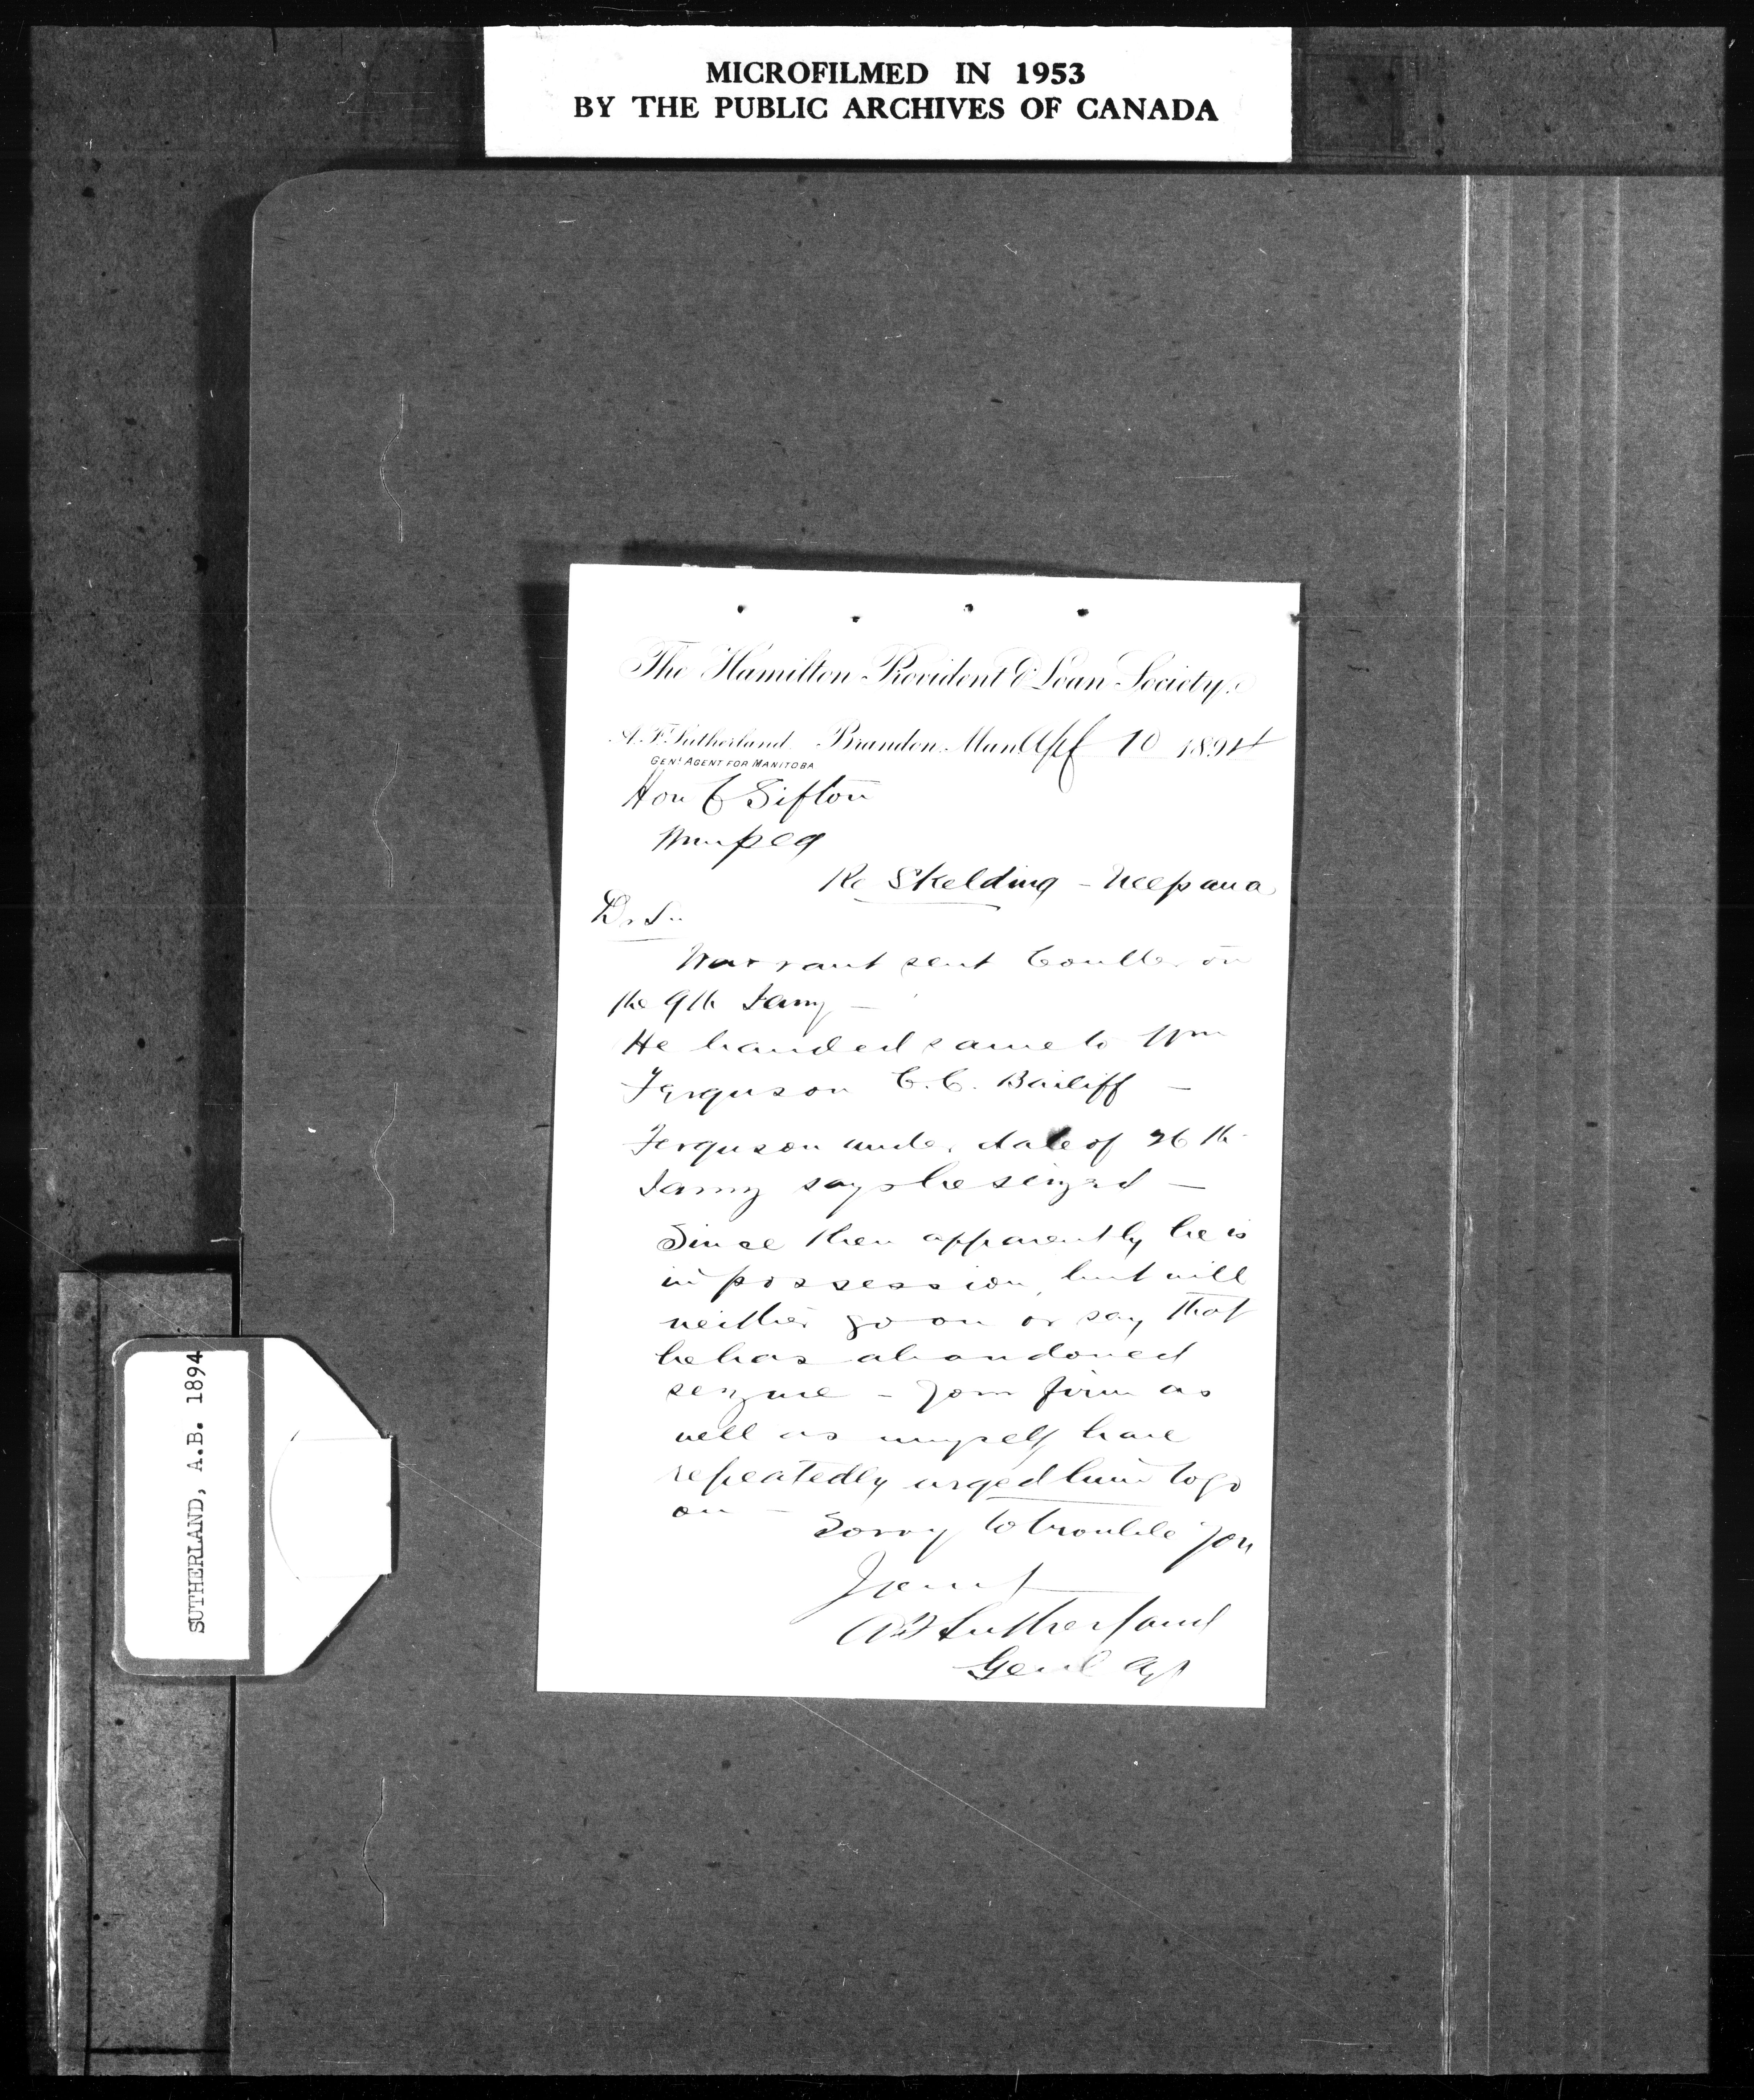 MICROFILMED IN 1953
BY THE PUBLIC ARCHIVES OF CANADA
The Hamilton Provident & Loan Society.
A. F. Sutherland. Brandon, Man. Apl 10 1894
GENL AGENT FOR MANITOBA
Hon C Sifton
Winpeg
Re Skelding - Neepawa
Dr Sir
Warrant sent Coulter on
the 9th Jany -
He handed same to Wm
Ferguson C.C. Bailiff -
Ferguson under date of 26th
Jany says he seized -
Since then apparently he is
in possession, but will
neither go on or say that
he has abandoned
seizure - Your firm as
well as myself have
repeatedly urged him to go
on - Sorry to trouble you
AB Sutherland
Genl Agt
SUTHERLAND, A.B. 1894